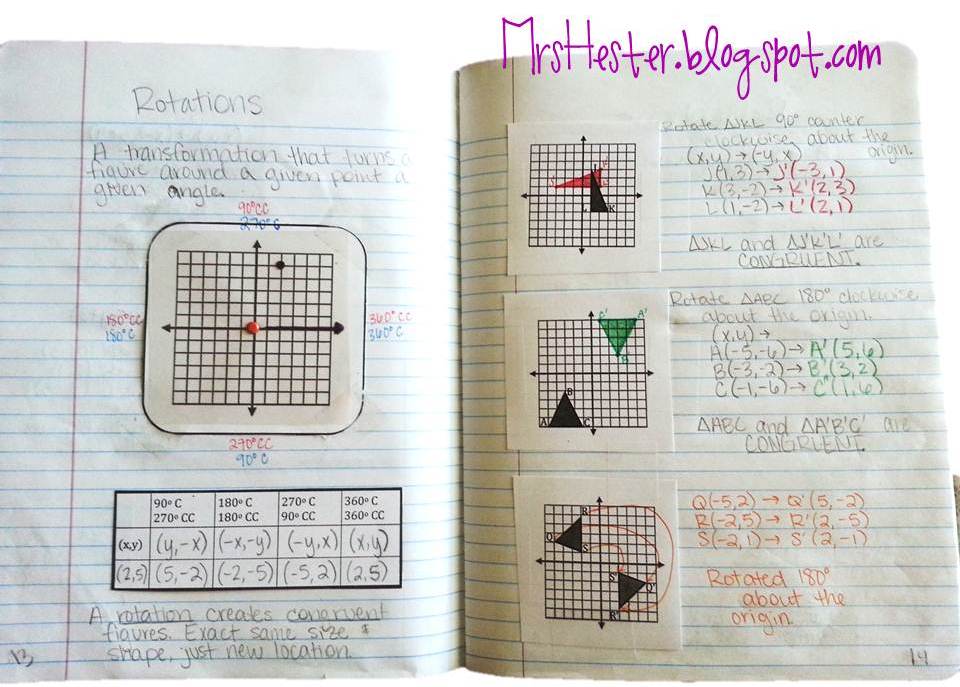 MrsHester.blogspot.com
Rotations
A transformation that turns a
figure around a given point a
given angle.
90° CC
270° C
180° CC
180° C
360° CC
360° C
270° CC
90° C
90° C 180° C 270° C 360° C
270° CC 180° CC 90° CC 360° CC
(x,y) (y,-x) (-x,-y) (-y,x) (x,y)
(2,5) (5,-2) (-2,-5) (-5,2) (2,5)
A rotation creates congruent
figures. Exact same size &
shape, just new location.
13
Rotate △JKL 90° counter
clockwise about the
(x,y) → (-y,x) origin.
J(1,3) → J'(-3,1)
K(3,-2) → K'(2,3)
L(1,-2) → L'(2,1)
△JKL and △J'K'L' are
CONGRUENT.
J'
K'
L'
L
K
Rotate △ABC 180° clockwise
about the origin.
(x,y) →
A(-5,-6) → A'(5,6)
B(-3,-2) → B'(3,2)
C(-1,-6) → C'(1,6)
△ABC and △A'B'C' are
CONGRUENT.
C'
A'
B'
B
A
C
Q(-5,2) → Q'(5,-2)
R(-2,5) → R'(2,-5)
S(-2,1) → S'(2,-1)
Rotated 180°
about the
origin.
R
Q
S
S'
Q'
R'
14